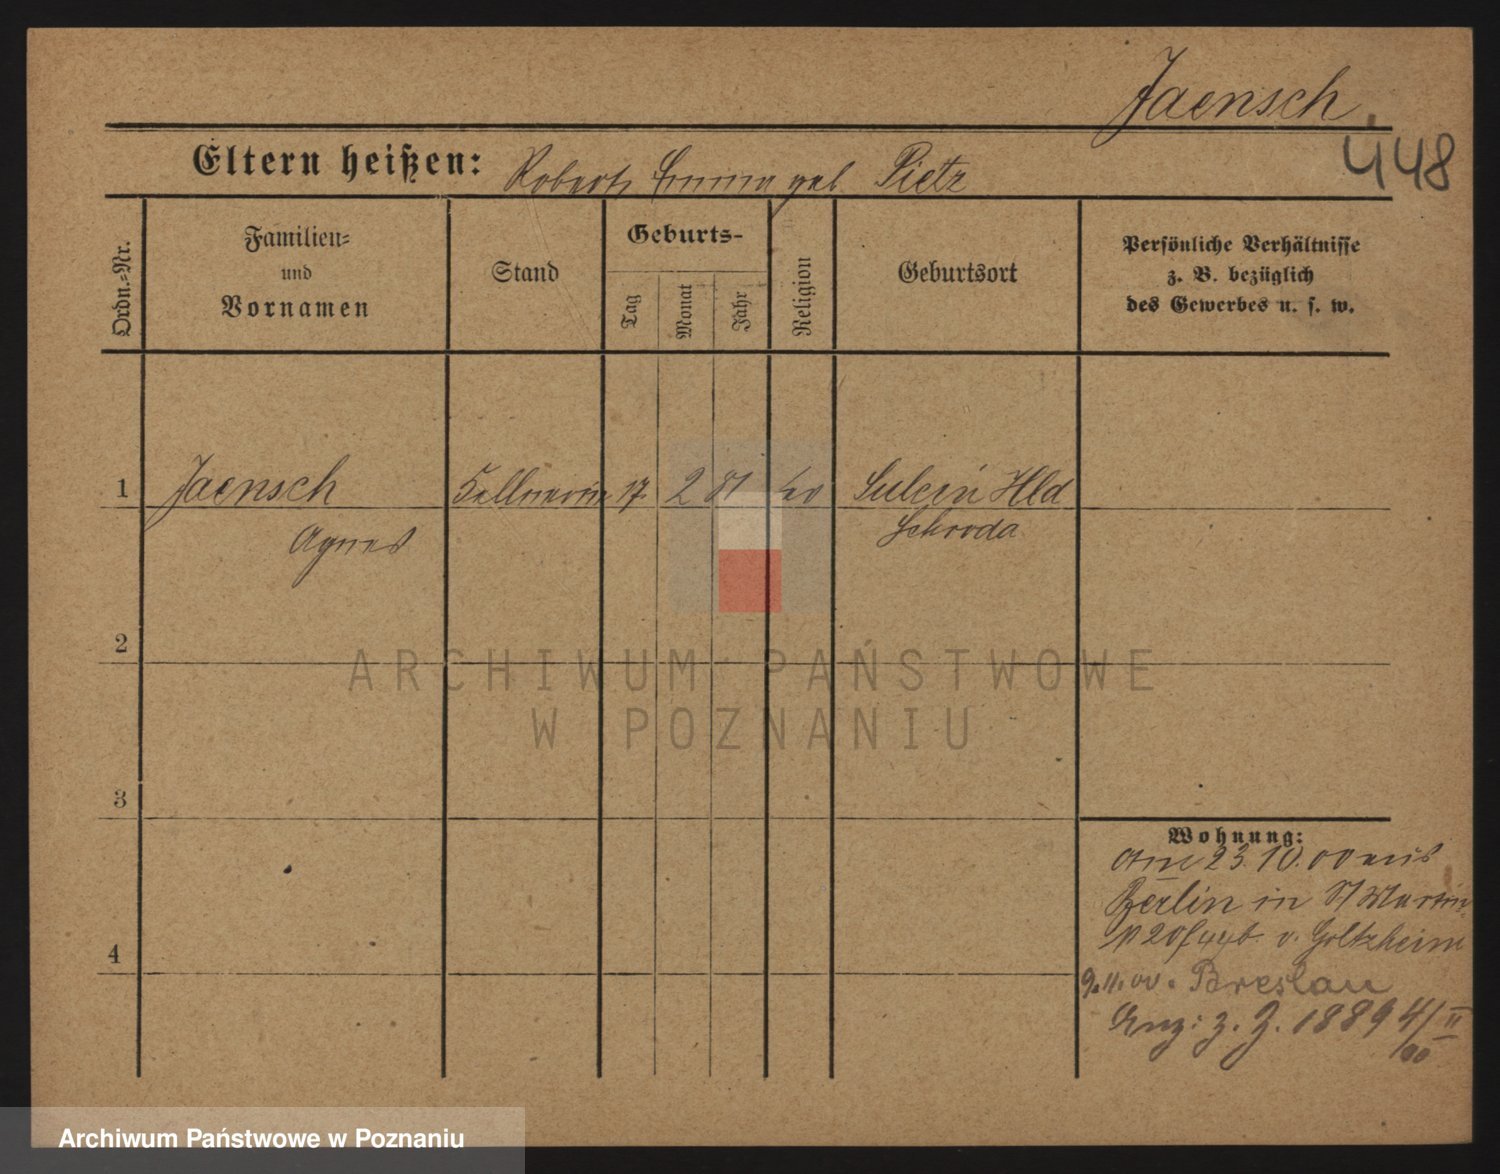 Jaensch.
448
Eltern heißen: Robert, Emma geb. Pietz
Ordn.-Nr.
Familien-
und
Vornamen
Stand
Geburts-
Tag
Monat
Jahr
Religion
Geburtsort
Persönliche Verhältnisse
z. B. bezüglich
des Gewerbes u. s. w.
1 Jaensch Kellnerin 17. 2 81 ev Sulcin Hld
Agnes Schroda
2
ARCHIWUM PAŃSTWOWE
W POZNANIU
3
4
Wohnung:
Am 23.10.00 aus
Berlin in St Martin
20 v. Goltzheim
9.11.00. Breslau
z. J. 1889 4/II
00
Archiwum Państwowe w Poznaniu